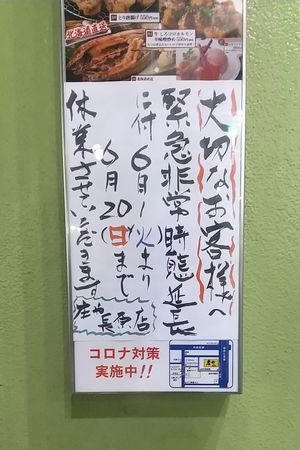 とり唐揚げ 550円
牛 しろコロホルモン
辛味噌炒め 550円
大切なお客様へ
緊急非常時態延長
に付 6月1(火)より
6月20(日)まで
休業させていただきます
庄や長原店
コロナ対策
実施中!!